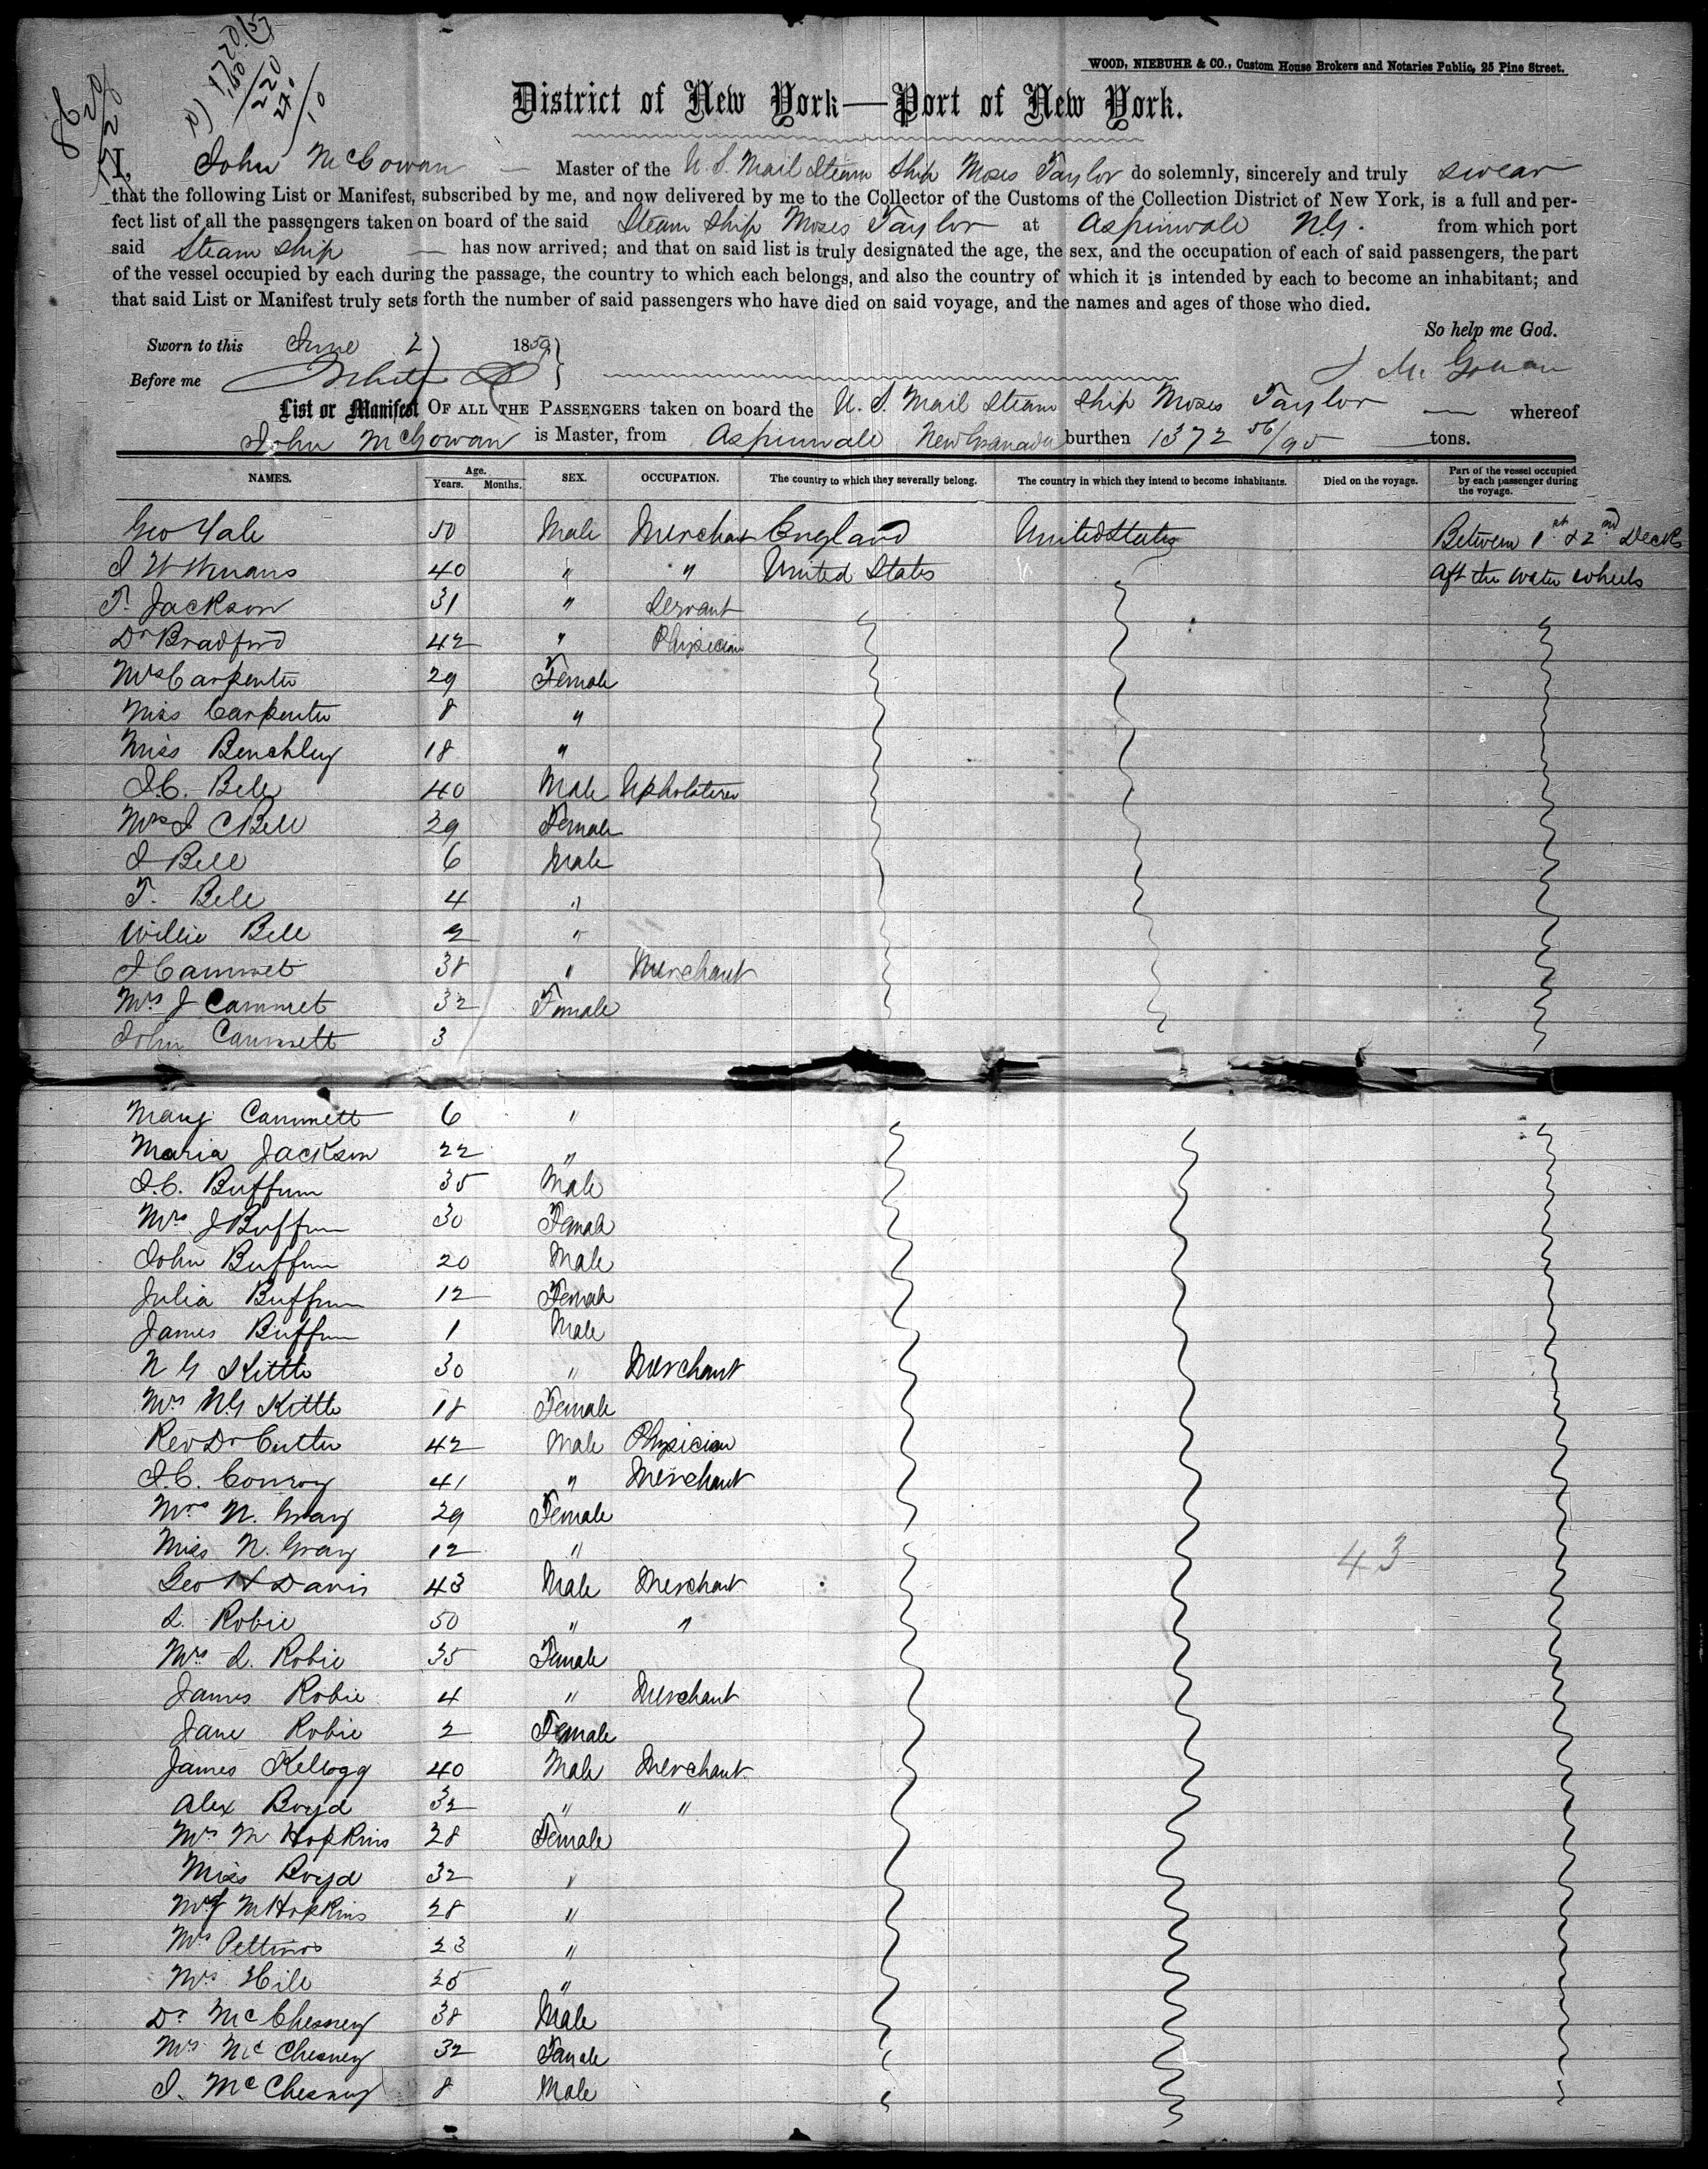 WOOD, NIEBUHR & CO., Custom House Brokers and Notaries Public, 25 Pine Street.
District of New York—Port of New York.
I, John McGowan — Master of the U. S. Mail Steam Ship Moses Taylor do solemnly, sincerely and truly swear
that the following List or Manifest, subscribed by me, and now delivered by me to the Collector of the Customs of the Collection District of New York, is a full and per-
fect list of all the passengers taken on board of the said Steam Ship Moses Taylor at Aspinwall N.G. from which port
said Steam Ship — has now arrived; and that on said list is truly designated the age, the sex, and the occupation of each of said passengers, the part
of the vessel occupied by each during the passage, the country to which each belongs, and also the country of which it is intended by each to become an inhabitant; and
that said List or Manifest truly sets forth the number of said passengers who have died on said voyage, and the names and ages of those who died.
So help me God.
Sworn to this June 2 1859
Before me J McGowan
List or Manifest OF ALL THE PASSENGERS taken on board the U. S. Mail Steam Ship Moses Taylor — whereof
John McGowan is Master, from Aspinwall New Granada burthen 1372 56/95 tons.
NAMES. Age. Years. Months. SEX. OCCUPATION. The country to which they severally belong. The country in which they intend to become inhabitants. Died on the voyage. Part of the vessel occupied by each passenger during the voyage.
Geo Yale 50 Male Merchant England United States Between 1st & 2nd Decks
J W Winans 40 " " United States aft the water wheels
T. Jackson 31 " Servant
Dr Bradford 42 " Physician
Mrs Carpenter 29 Female
Miss Carpenter 8 "
Miss Benchley 18 "
J.C. Bell 40 Male Upholsterer
Mrs J C Bell 29 Female
J Bell 6 Male
T. Bell 4 "
Willie Bell 2 "
J Cammet 38 " Merchant
Mrs J Cammet 32 Female
John Cammett 3
Mary Cammett 6 "
Maria Jackson 22 "
J.C. Buffum 35 Male
Mrs J Buffum 30 Female
John Buffum 20 Male
Julia Buffum 12 Female
James Buffum 1 Male
N G Kittle 30 " Merchant
Mrs N.G Kittle 18 Female
Rev Dr Cutter 42 Male Physician
J.C. Conroy 41 " Merchant
Mrs N. Gray 29 Female
Miss N. Gray 12 "
43
Geo H Davis 43 Male Merchant
L. Robie 50 " "
Mrs L. Robie 35 Female
James Robie 4 " Merchant
Jane Robie 2 Female
James Kellogg 40 Male Merchant
Alex Boyd 32 " "
Mrs M Hopkins 28 Female
Miss Boyd 32 "
M Hopkins 28 "
Mrs Pettinos 23 "
Mrs Hill 25 "
Dr McChesney 38 Male
Mrs McChesney 32 Female
J. McChesney 8 Male